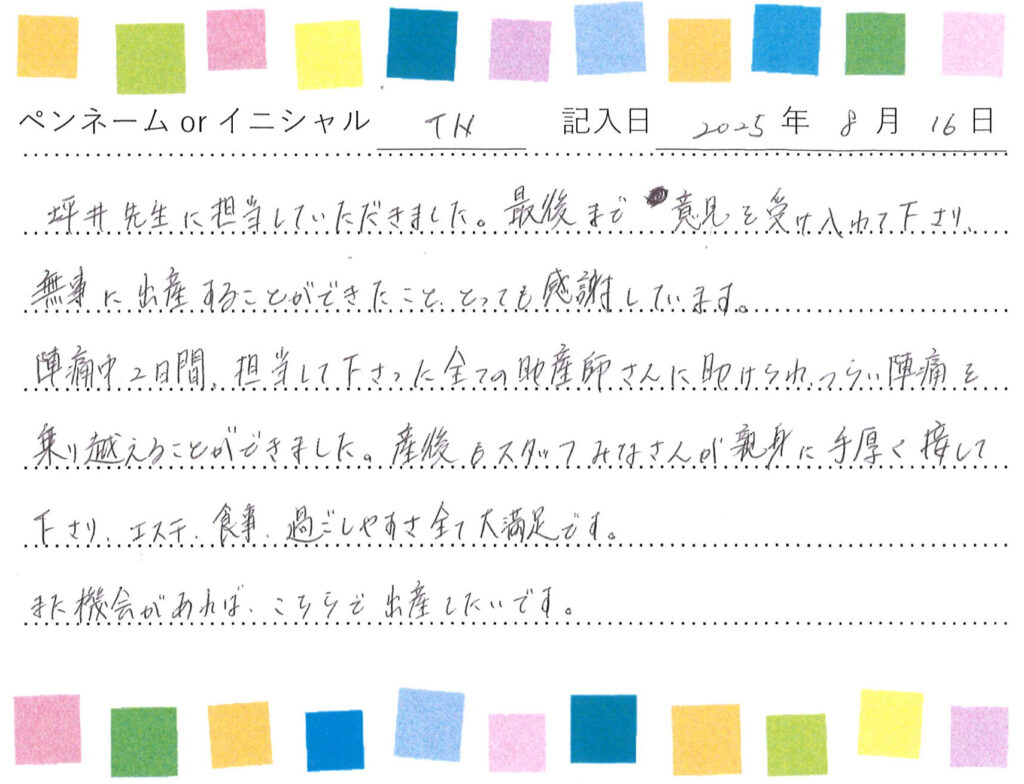 ペンネーム or イニシャル TH 記入日 2025 年 8 月 16 日
坪井先生に担当していただきました。最後まで意見を受け入れて下さり、
無事に出産することができたこと、とっても感謝しています。
陣痛中2日間、担当して下さった全ての助産師さんに助けられ、つらい陣痛を
乗り越えることができました。産後もスタッフみなさんが親身に手厚く接して
下さり、エステ、食事、過ごしやすさ全て大満足です。
また機会があれば、こちらで出産したいです。